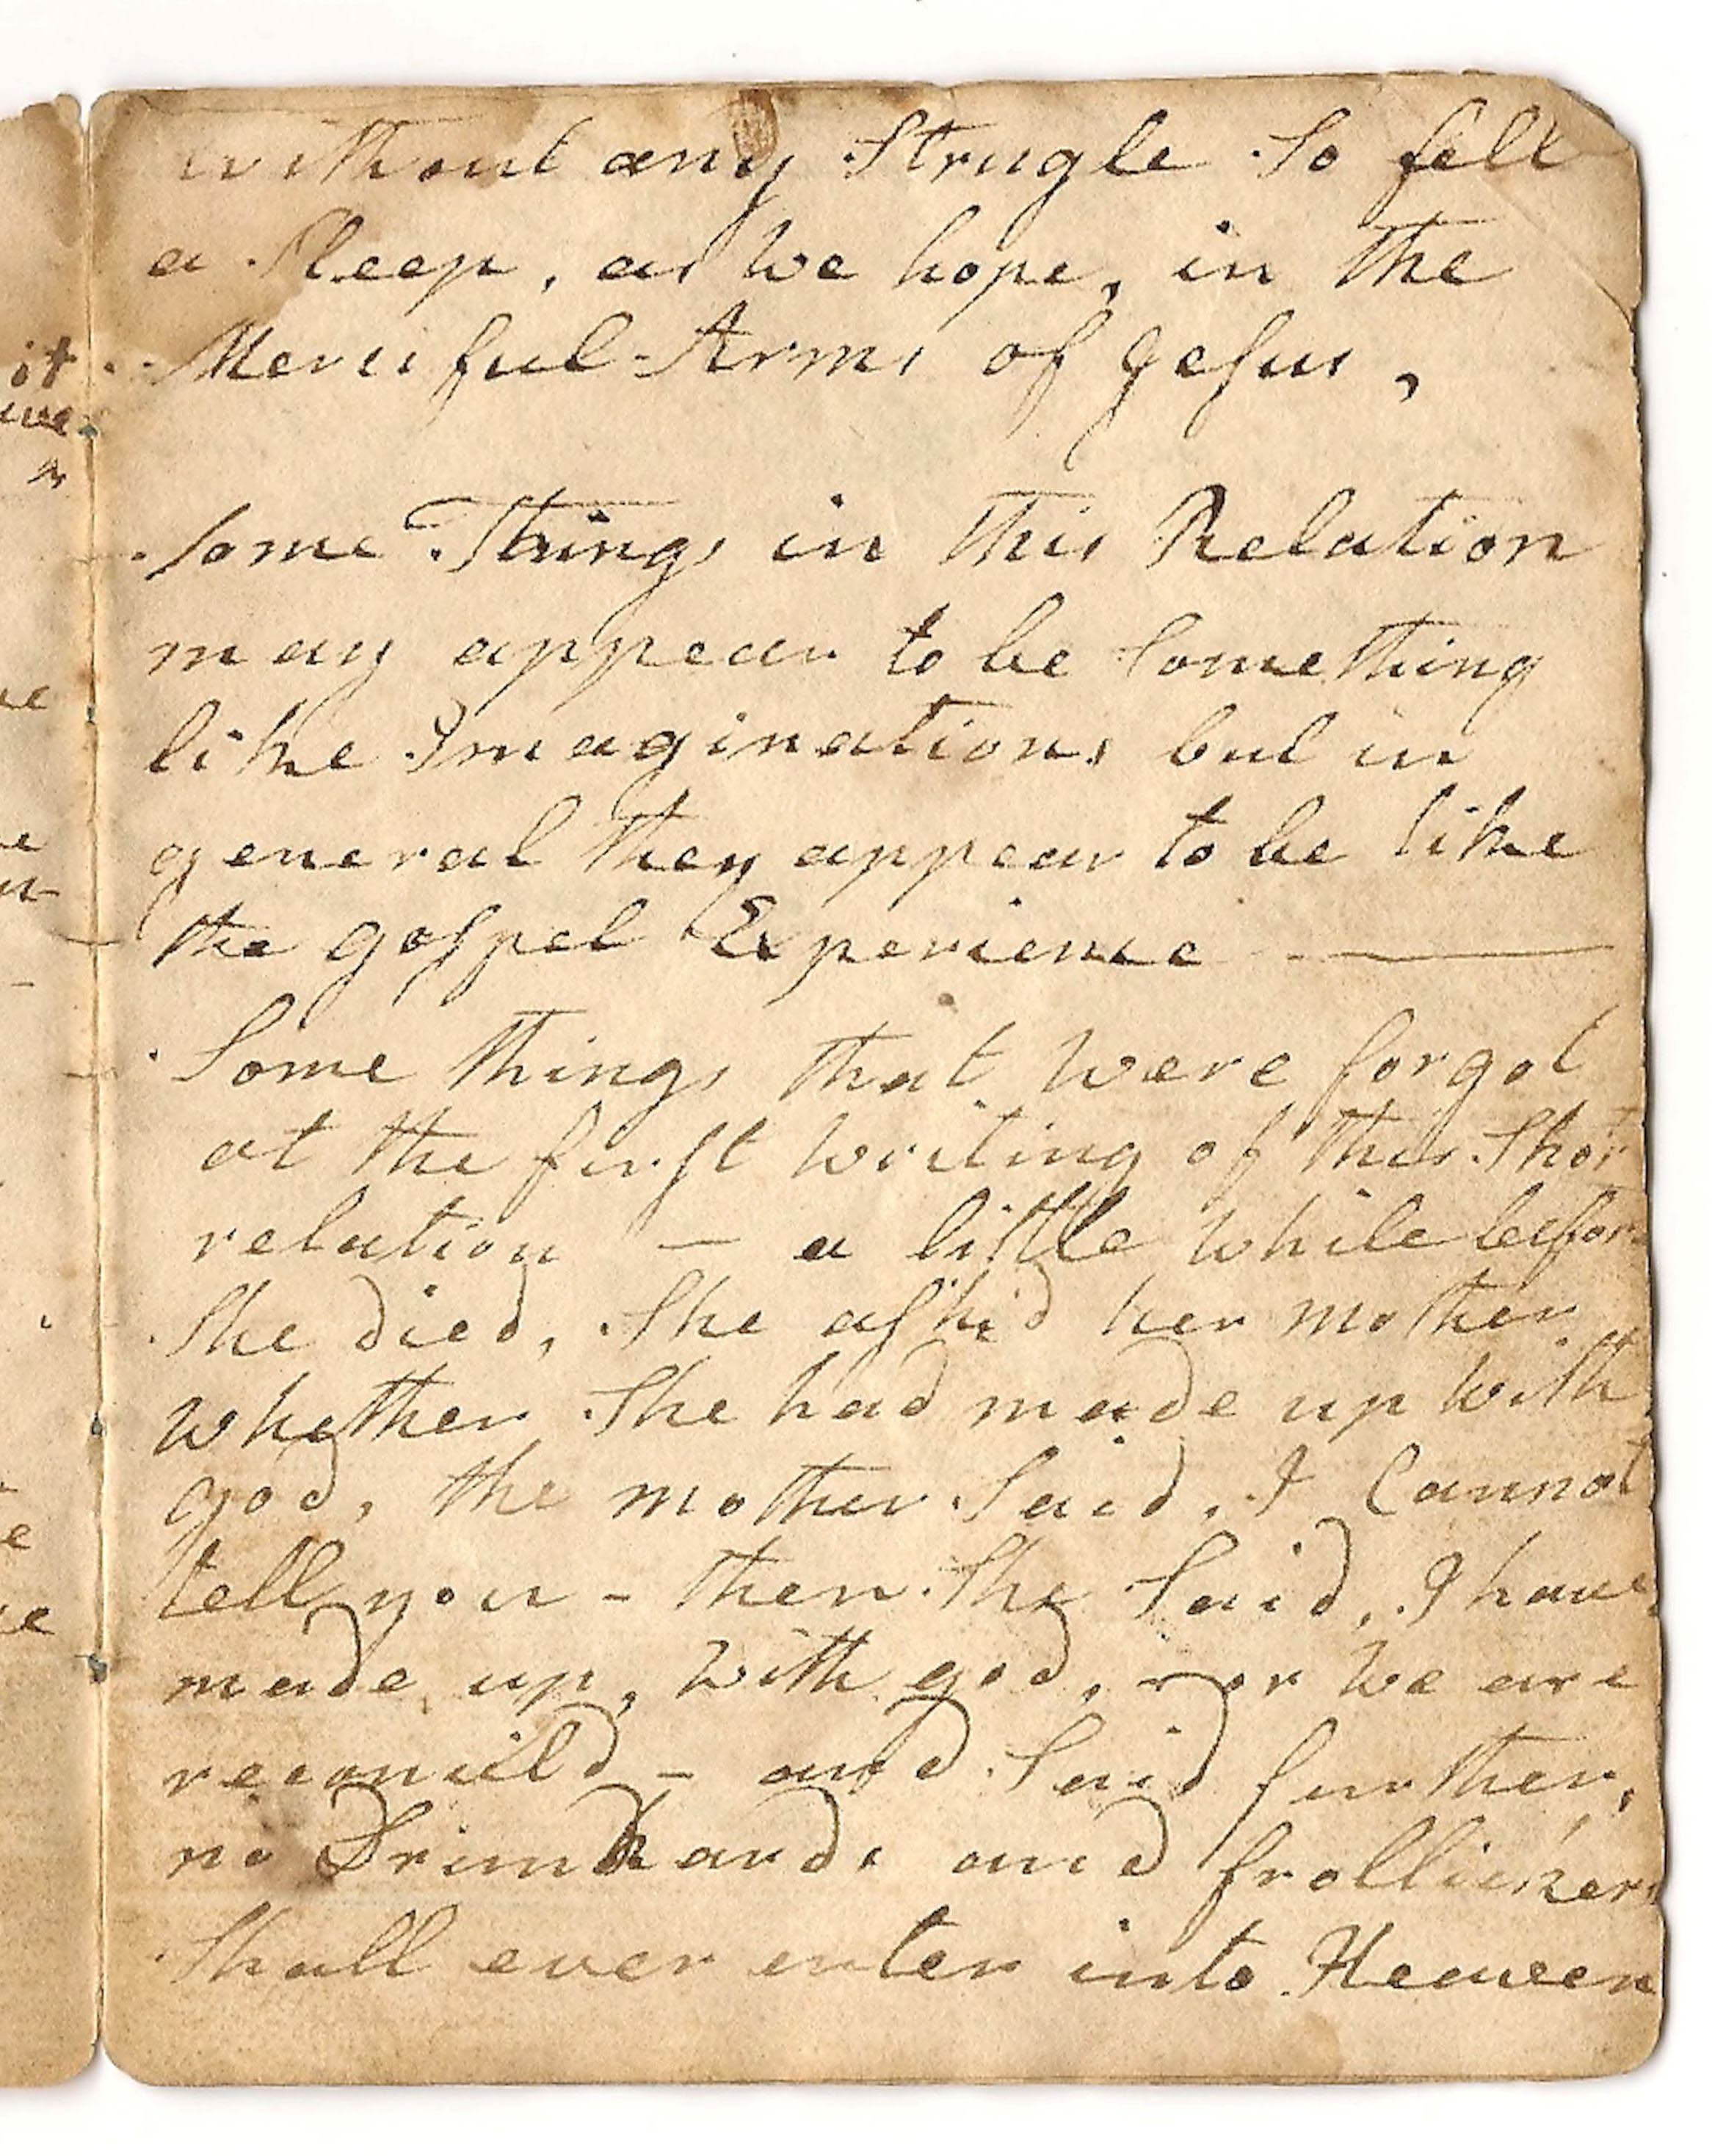 without any Strugle So fell
a Sleep, as we hope, in the
Merciful Arms of Jesus,
Some Things in this Relation
may appear to be Something
like Imaginations but in
general they appear to be like
the gospel Experience —
Some things that were forgot
at the first writing of this Shor
relation — a little while befor
She died, She ask'd her mother
whether She had made up with
god, the mother Said, I Cannot
tell you - then She Said, I have
made up, with god, or we are
reconcild - and Said further,
no Drunkards and frollickers
Shall ever enter into Heaven
it